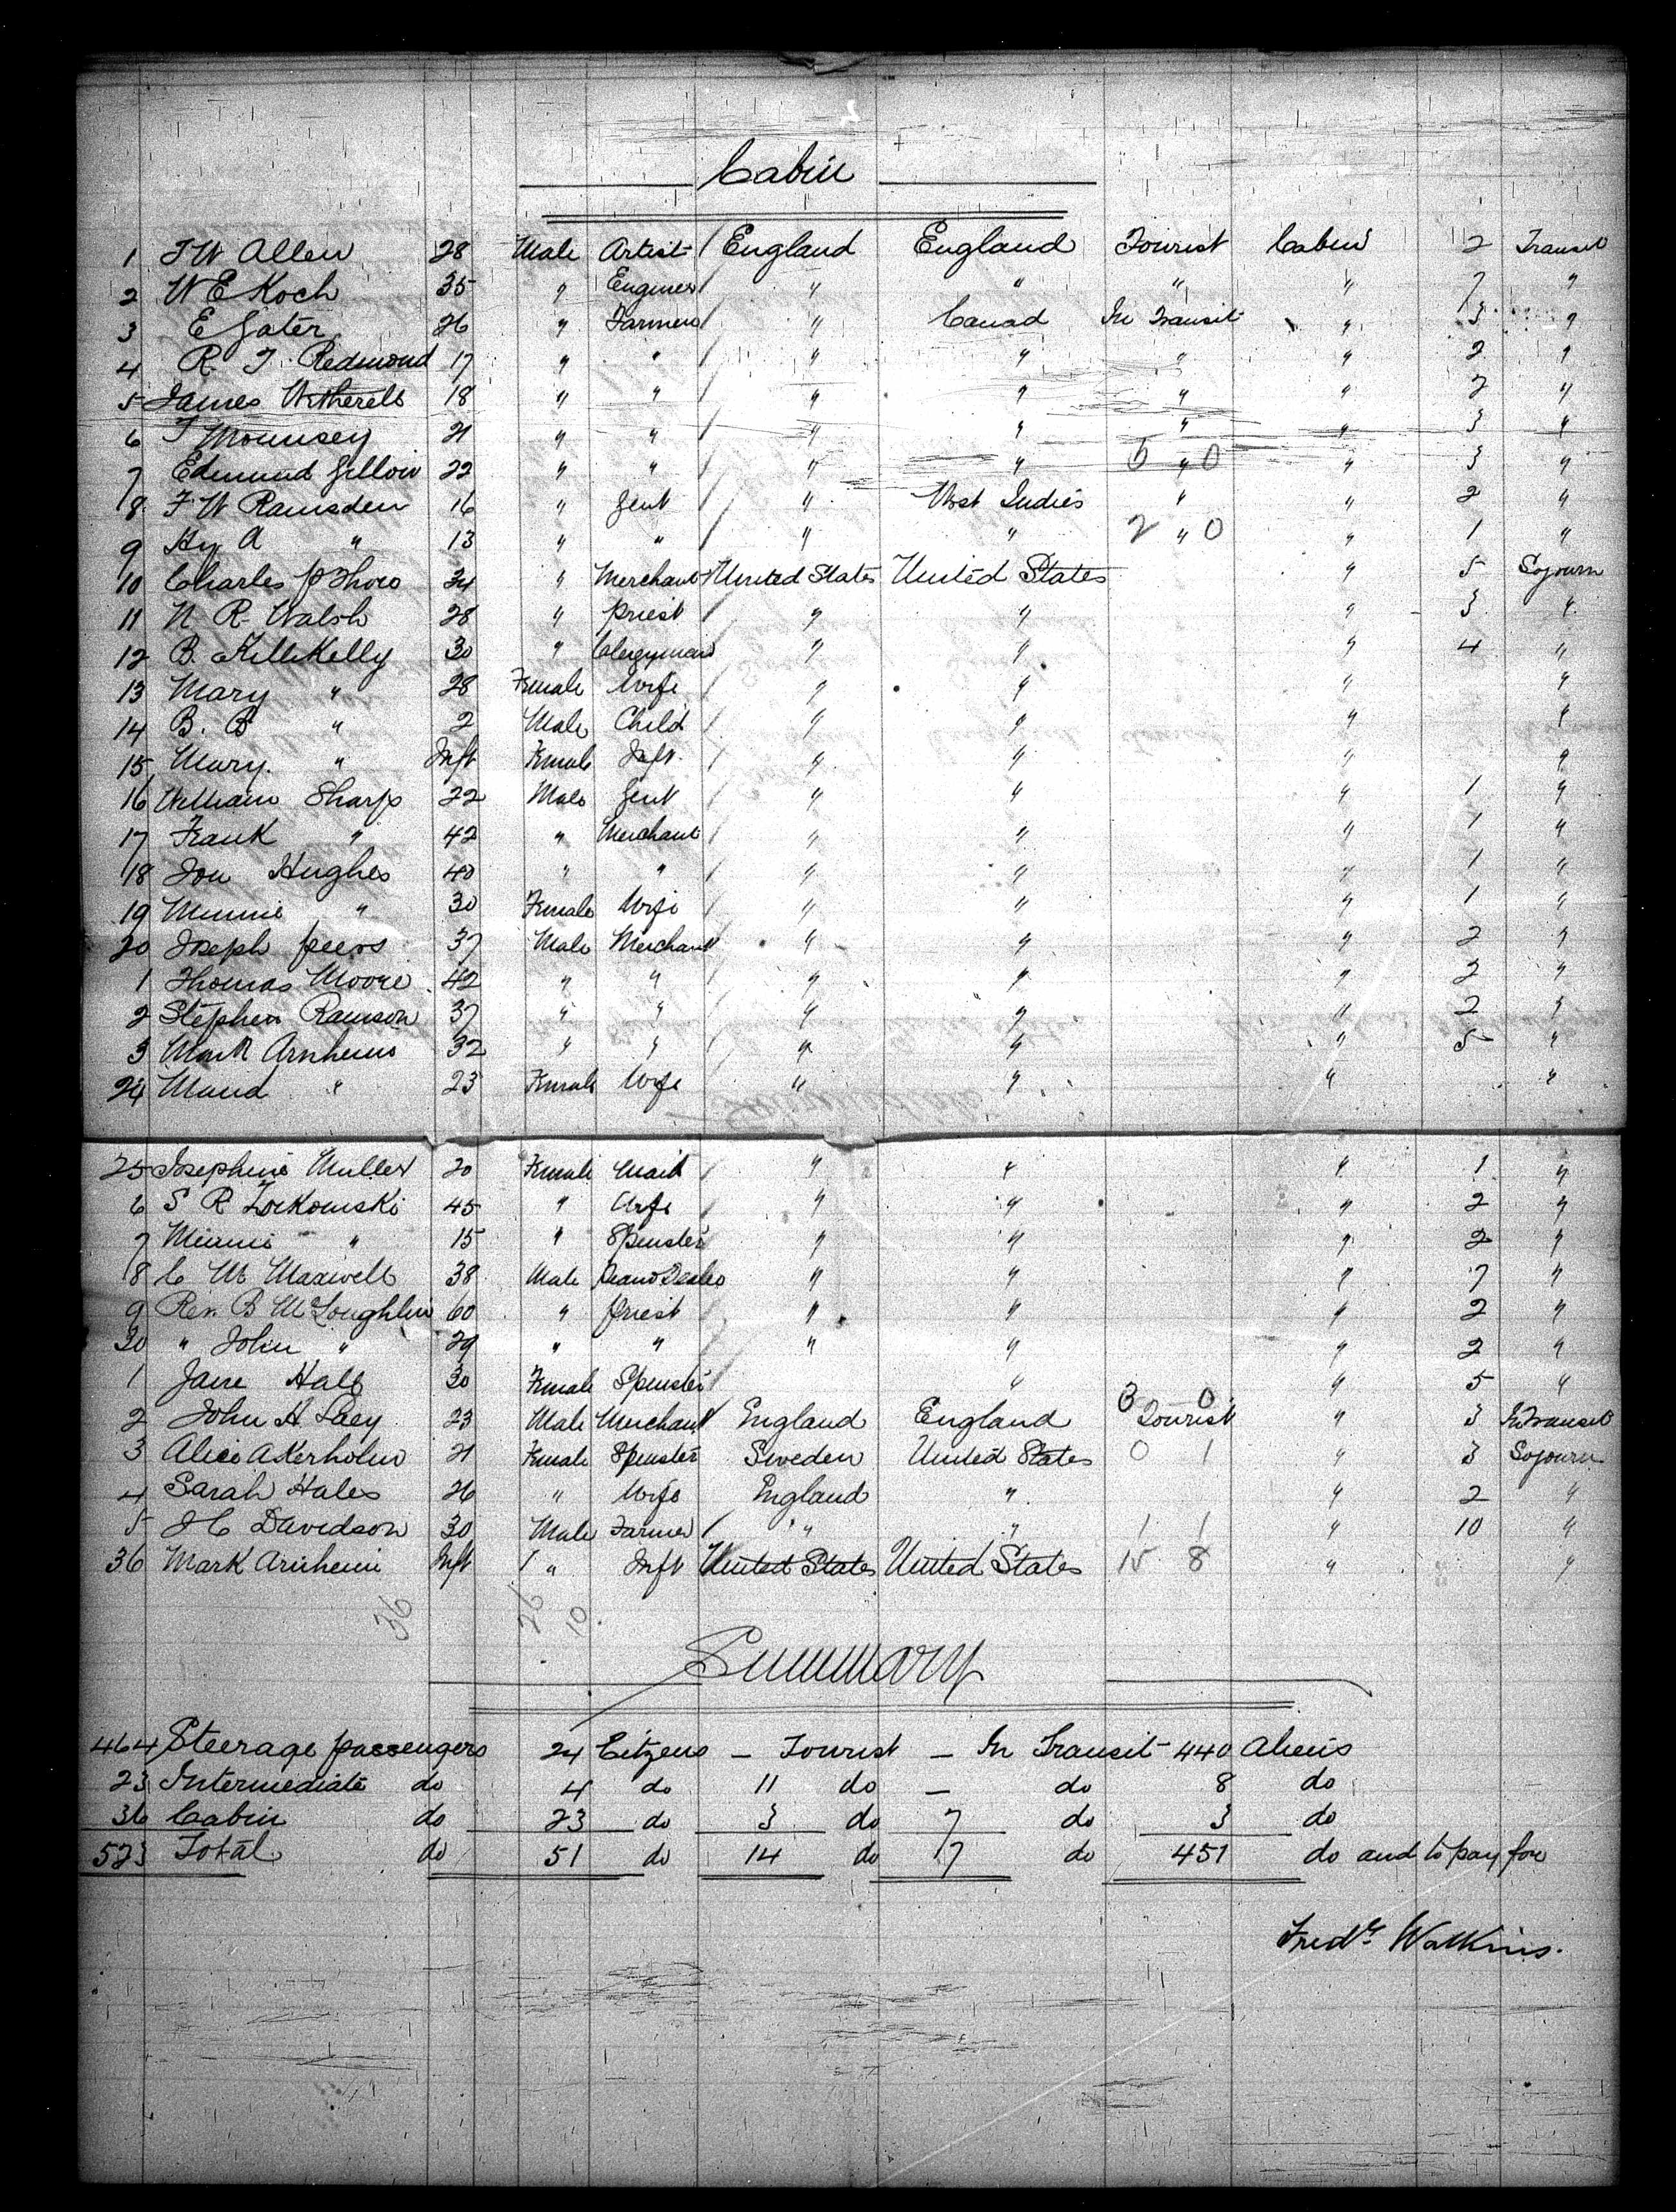 Cabin
1 T W Allen 28 Male Artist England England Tourist Cabin 2 Transit
2 W E Koch 35 " Engineer " " " " 7 "
3 E Gater 26 " Farmer " Canad In Transit " 3 "
4 R. T. Redmond 17 " " " " " " 2 "
5 James Witherell 18 " " " " " " 2 "
6 T Mounsey 21 " " " " " " 3 "
7 Edmund Gillow 22 " " " " 5 " 0 " 3 "
8 F W Ramsden 16 " Gent " West Indies " " 2 "
9 Hy A " 13 " " " " 2 " 0 " 1 "
10 Charles P Thow 34 " Merchant United States United States " 5 Sojourn
11 N R Walsh 28 " Priest " " " 3 "
12 B. KilliKelly 30 " Clergyman " " " 4 "
13 Mary " 28 Female Wife " " " "
14 B. B " 2 Male Child " " " "
15 Mary. " Inft Female Inft. " " " "
16 William Sharp 22 Male Gent " " " 1 "
17 Frank " 42 " Merchant " " " 1 "
18 Jon Hughes 40 " " " " " 1 "
19 Minnie " 30 Female Wife " " " 1 "
20 Joseph Peers 37 Male Merchant " " " 2 "
1 Thomas Moore 42 " " " " " 2 "
2 Stephen Ramson 37 " " " " " 2 "
3 Mark Arnheim 32 " " " " " 5 "
24 Maud " 23 Female Wife " " " "
25 Josephine Muller 20 Female Maid " " " 1 "
6 S R Zorkowski 45 " Wife " " " 2 "
7 Minnie " 15 " Spinster " " " 2 "
8 C M Maxwell 38 Male Piano Dealer " " " 7 "
9 Rev. B McLoughlin 60 " Priest " " " 2 "
30 " John " 29 " " " " " 2 "
1 Jane Hall 30 Female Spinster " " 5 "
2 John H 23 Male Merchant England England 3 0 Tourist " 3 In Transit
3 Alice Akerholm 21 Female Spinster Sweden United States 0 1 " 3 Sojourn
4 Sarah Hales 26 " Wife England " " 2 "
5 J C Davidson 30 Male Farmer " " 1 1 " 10 "
36 Mark Arnheim Inft " Inft United States United States 15 8 " "
36 26 10
Summary
464 Steerage passengers 24 Citzens — Tourist — In Transit 440 Aliens
23 Intermediate do 4 do 11 do — do 8 do
36 Cabin do 23 do 3 do 7 do 3 do
523 Total do 51 do 14 do 7 do 451 do and to pay for
Fredk. Watkins.